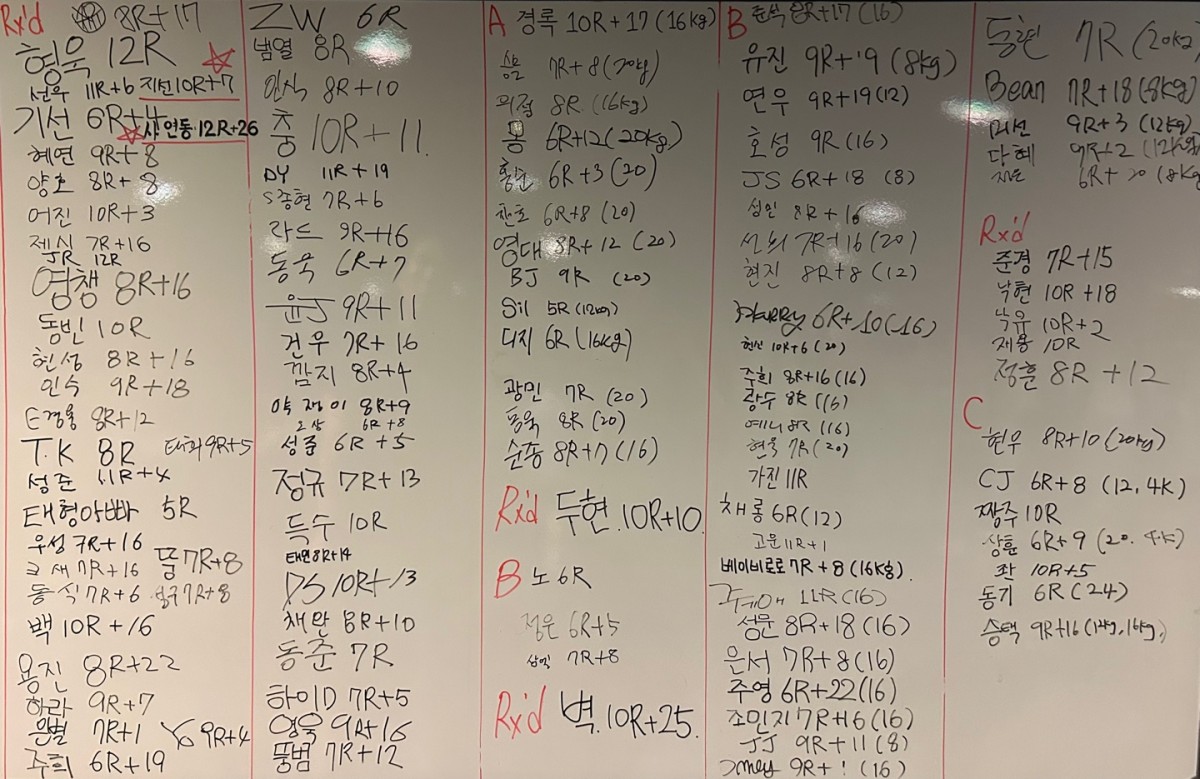 Rx'd 8R+17
형욱 12R
선우 11R+6 지선 10R+7
기선 6R+4
샤 연동 12R+26
혜연 9R+8
양호 8R+8
어진 10R+3
제식 7R+16
JR 12R
영챙 8R+16
동빈 10R
헌성 8R+16
인수 9R+18
E경율 8R+12
T.K 8R 태희 9R+5
성준 11R+4
태형아빠 5R
우성 7R+16
7R+16 뚱 7R+8
동식 7R+6 7R+8
백 10R+16
용진 8R+22
하라 9R+7
은별 7R+1 YG 9R+4
주희 6R+19
ZW 6R
범열 8R
인식 8R+10
충 10R+11
DY 11R+19
S종현 7R+6
라드 9R+16
동욱 6R+7
윤J 9R+11
건우 7R+16
깜지 8R+4
약쟁이 8R+9
6R+8
성준 6R+5
정규 7R+13
득수 10R
태연 8R+14
DS 10R+13
채완 8R+10
동준 7R
하이D 7R+5
영욱 9R+16
뚱범 7R+12
A 경록 10R+17 (16kg)
7R+8 (20kg)
8R (16kg)
6R+12 (20kg)
6R+3 (20)
찬호 6R+8 (20)
영대 8R+12 (20)
BJ 9R (20)
Sil 5R (12kg)
디지 6R (16kg)
광민 7R (20)
동욱 8R (20)
순종 8R+7 (16)
Rx'd 두현 10R+10
B 노 6R
정은 6R+5
7R+8
Rx'd 벽 10R+25
B 준석 8R+17 (16)
유진 9R+19 (8kg)
연우 9R+19 (12)
호성 9R (16)
JS 6R+18 (8)
성인 8R+16
선뇌 7R+16 (20)
현진 8R+8 (12)
Harry 6R+10 (16)
현신 10R+6 (20)
주희 8R+16 (16)
광수 8R (16)
예니 8R (16)
현욱 7R (20)
가진 11R
채롱 6R (12)
고운 11R+1
베이비로로 7R+8 (16kg)
11R (16)
성문 8R+18 (16)
은서 7R+8 (16)
주영 6R+22 (16)
조민지 7R+16 (16)
JJ 9R+11 (8)
9R+1 (16)
동현 7R (20kg)
Bean 7R+18 (8kg)
미선 9R+3 (12kg)
다혜 9R+2 (12kg)
6R+20 (8kg)
Rx'd
준경 7R+15
낙현 10R+18
낙유 10R+2
재용 10R
정훈 8R+12
C
현우 8R+10 (20kg)
CJ 6R+8 (12, 4K)
짱주 10R
상훈 6R+9 (20. 4K)
좌 10R+5
동기 6R (24)
승택 9R+16 (12kg, 16kg)